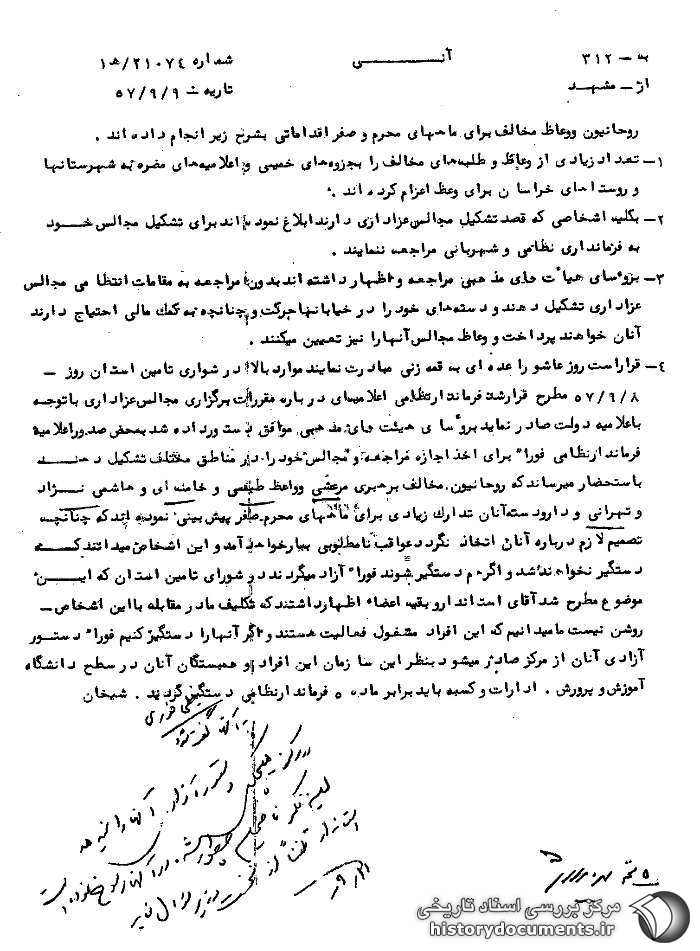 به – ۳۱۲ آنـــــی شماره ۲۱۰۷۴/هـ۱
از – مشهد تاریخ ۵۷/۹/۹
روحانیون ووعاظ مخالف برای ماههای محرم و صفر اقداماتی بشرح زیر انجام داده اند .
۱– تعداد زیادی از وعاظ و طلبه‌های مخالف را بجزوه‌های خمینی و اعلامیه‌های مضره به شهرستانها
و روستاهای خراسان برای وعظ اعزام کرده اند .
۲– بکلیه اشخاصی که قصد تشکیل مجالس عزاداری دارند ابلاغ نموده اند برای تشکیل مجالس خود
به فرمانداری نظامی و شهربانی مراجعه ننمایند .
۳– بروسای هیأت های مذهبی مراجعه و اظهار داشته اند بدون مراجعه به مقامات انتظامی مجالس
عزاداری تشکیل دهند و دسته‌های خود را در خیابانها حرکت و چنانچه به کمک مالی احتیاج دارند
آنان خواهند پرداخت و وعاظ مجالس آنها را نیز تعیین میکنند .
۴– قرار است روز عاشورا عده ای به قمه زنی مبادرت نمایند موارد بالا در شورای تامین استان روز –
۵۷/۹/۸ مطرح قرار شد فرماندار نظامی اعلامیه‌ای درباره مقررات برگزاری مجالس عزاداری با توجه
باعلامیه دولت صادر نماید بروسای هیئت های مذهبی موافق دستور داده شد بمحض صدور اعلامیه
فرماندار نظامی فورا" برای اخذ اجازه مراجعه و مجالس خود را در مناطق مختلف تشکیل دهند
باستحضار میرساند که روحانیون مخالف برهبری مرعشی و واعظ طبسی و خامنه ای و هاشمی نژاد
و تهرانی و دارودسته آنان تدارک زیادی برای ماههای محرم صفر پیش بینی نموده اند که چنانچه
تصمیم لازم درباره آنان اتخاذ نگردد عواقب نامطلوبی ببار خواهد آمد و این اشخاص میدانند که
دستگیر نخواهند شد و اگر هم دستگیر شوند فورا" آزاد میگردند در شورای تامین استان که این
موضوع مطرح شد آقای استاندار و بقیه اعضاء اظهار داشتند که تکلیف ما در مقابله با این اشخاص –
روشن نیست ما میدانیم که این افراد مشغول فعالیت هستند و اگر آنها را دستگیر کنیم فورا" دستور
آزادی آنان از مرکز صادر میشود بنظر این سازمان این افراد و همبستگان آنان در سطح دانشگاه
آموزش و پرورش . ادارات و کسبه باید برابر ماده ۵ فرماندار نظامی دستگیر گردند . شیخان
به آنها گفته شود
دستور آزادی آنها را
۹/۲۱
مرکز بررسی اسناد تاریخی
historydocuments.ir